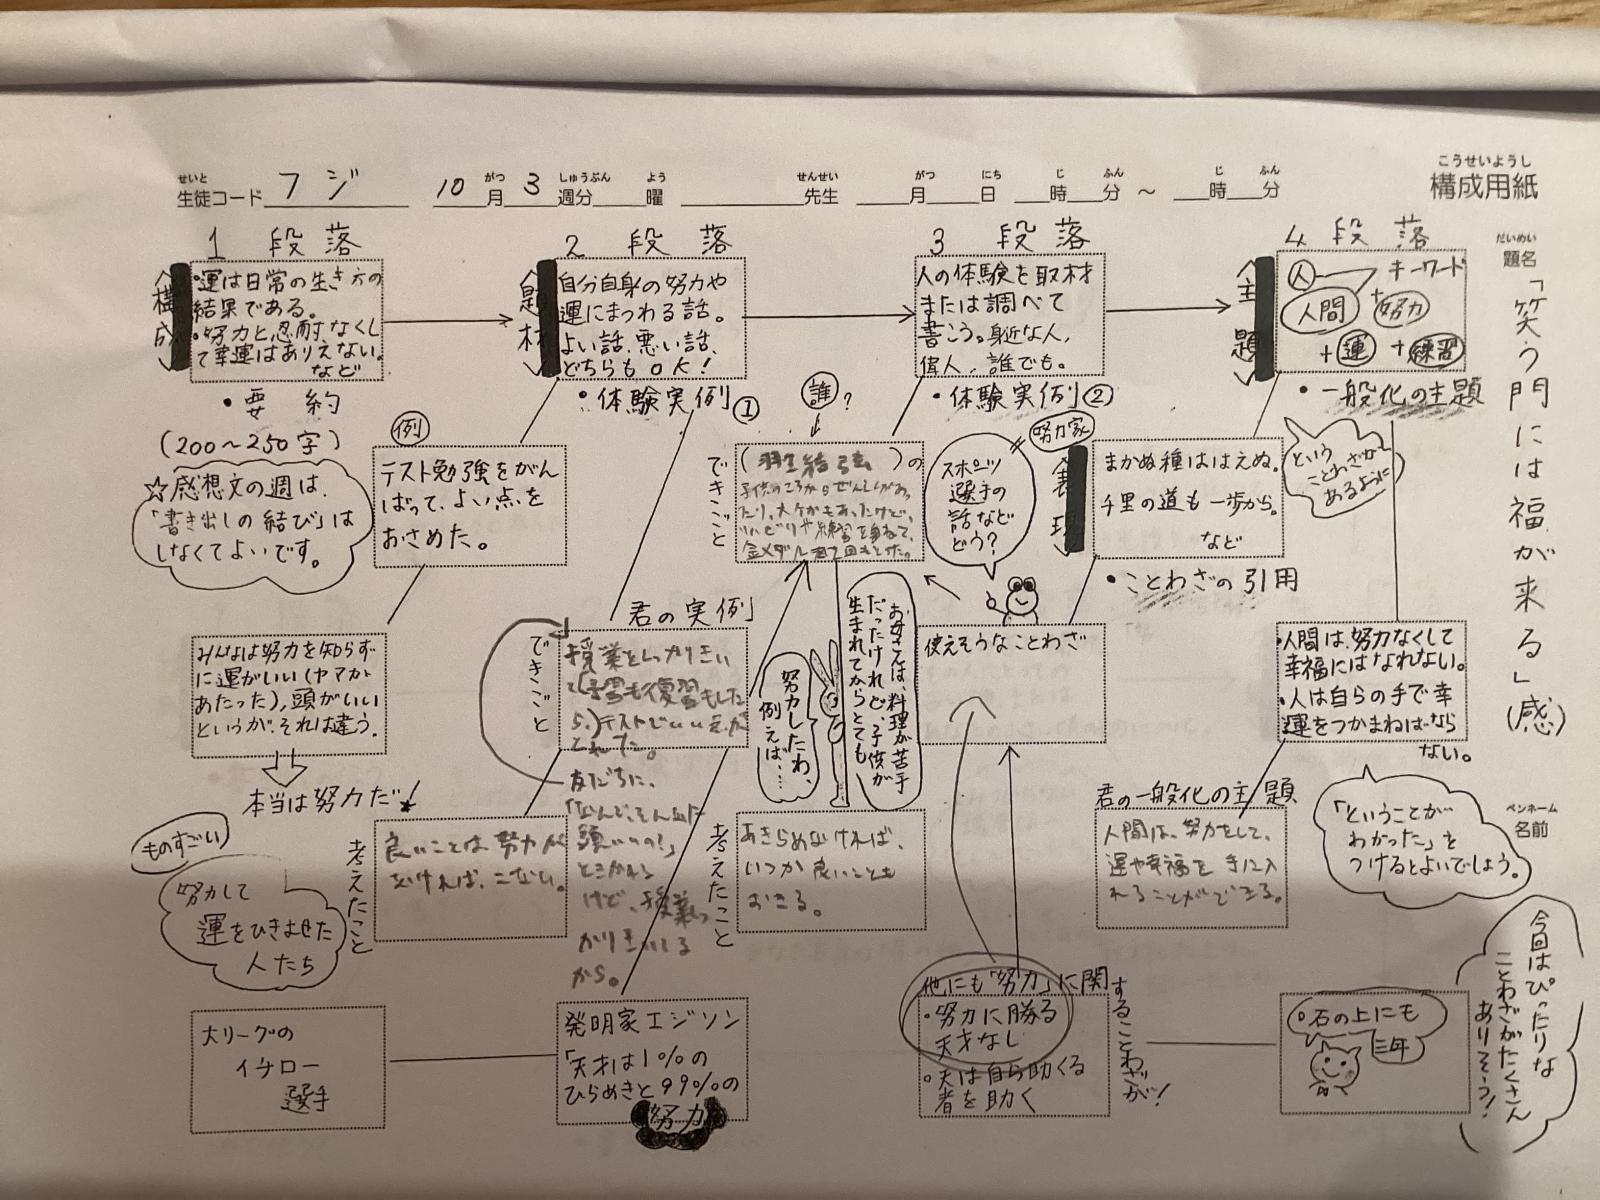 こうせいようし
構成用紙
せいと
生徒コード フジ
10月3週分 曜
がつ しゅうぶん よう
せんせい
先生
がつ にち じ ふん
月 日 時 分 ～ 時 分
じ ふん
だいめい
題名
「笑う門には福が来る」(感)
ペンネーム
名前
1 段落
構成
・運は日常の生き方の
結果である。
・努力と忍耐なくし
て幸運はありえない。
など
・要約
(200～250字)
☆感想文の週は、
「書き出しの結び」は
しなくてよいです。
2 段落
題材
自分自身の努力や
運にまつわる話。
よい話、悪い話、
どちらもOK!
・体験実例①
3 段落
人の体験を取材
または調べて
書こう。身近な人、
偉人、誰でも。
・体験実例②
4 段落
主題
人 キーワード
人間 + 努力
+ 運 + 練習
・一般化の主題
という
ことわざが
あるように
例
テスト勉強をがん
ばって、よい点を
おさめた。
誰?
できごと
(羽生結弦)の
金メダル
スポーツ
選手の
話など
どう?
= 努力家
表現
まかぬ種ははえぬ。
千里の道も一歩から。
など
・ことわざの引用
みんなは努力を知らず
に運がいい(ヤマが
あたった)、頭がいい
というが、それは違う。
本当は努力だ!
君の実例
できごと
授業をしっかりきい
て(予習も復習もした
ら)テストでいい点が
とれた。
友だちに、
「なんで、そんなに
頭いいの?」
ときかれ
けど、授業しっ
かりきいてる
から。
努力したわ、
例えば、…
お母さんは、料理が苦手
だったけれど、子供が
生まれてからとても
使えそうなことわざ
・人間は、努力なくして
幸福にはなれない。
・人は自らの手で幸
運をつかまねばなら
ない。
君の一般化の主題
人間は、努力をして、
運や幸福を手に入
れることができる。
「ということが
わかった」を
つけるとよいでしょう。
ものすごい
努力して
運をひきよせた
人たち
考えたこと
良いことは努力が
なければ、こない。
考えたこと
あきらめなければ、
いつか良いことも
おきる。
大リーグの
イチロー
選手
発明家エジソン
「天才は1%の
ひらめきと99%の
努力
他にも「努力」に関
することわざが!
・努力に勝る
天才なし
・天は自ら助くる
者を助く
・石の上にも
三年
今回はぴったりな
ことわざがたくさん
ありそう!